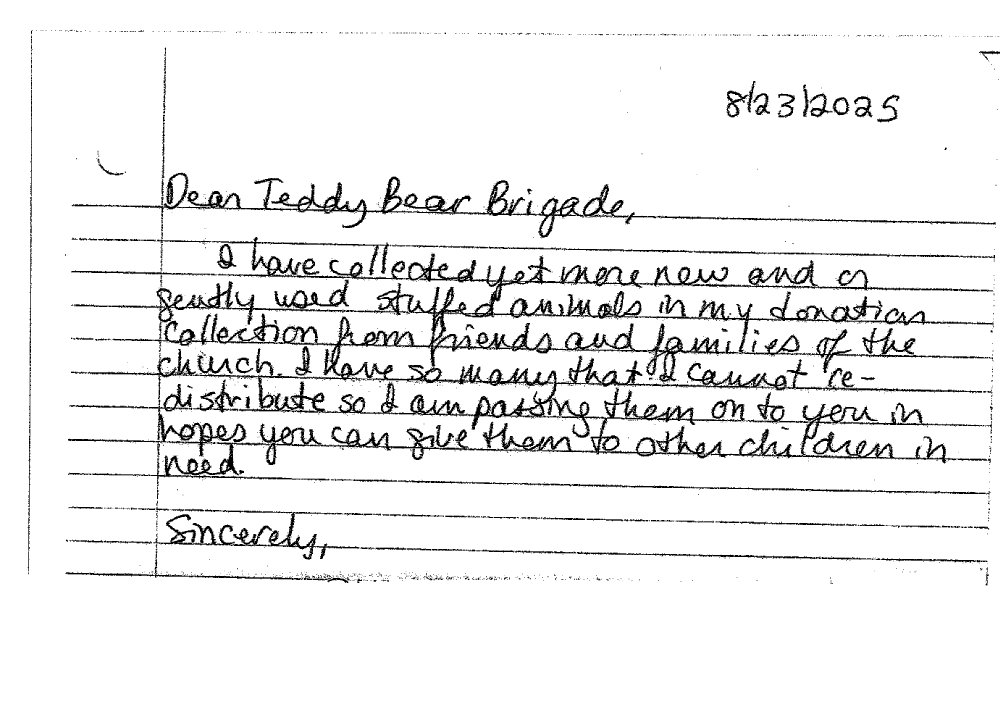 8/23/2025
Dear Teddy Bear Brigade,
I have collected yet more new and or
gently used stuffed animals in my donation
collection from friends and families of the
church. I have so many that I cannot re-
distribute so I am passing them on to you in
hopes you can give them to other children in
need.
Sincerely,